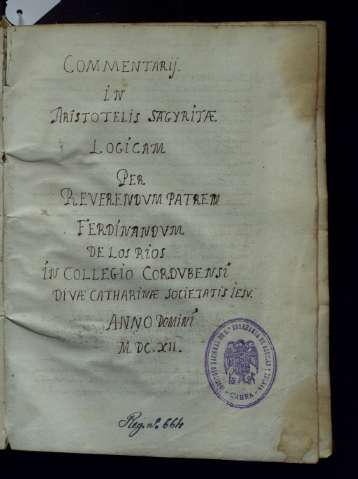 COMMENTARIJ.
IN
ARISTOTELIS SAGYRITÆ
LOGICAM
PER
REVERENDUM PATREM
FERDINANDUM
DE LOS RIOS
IN COLLEGIO CORDUBENSI
DIVÆ CATHARINÆ SOCIETATIS IESV.
ANNO DOMINI
M DC. XII.
CABRA
Reg. nº. 664